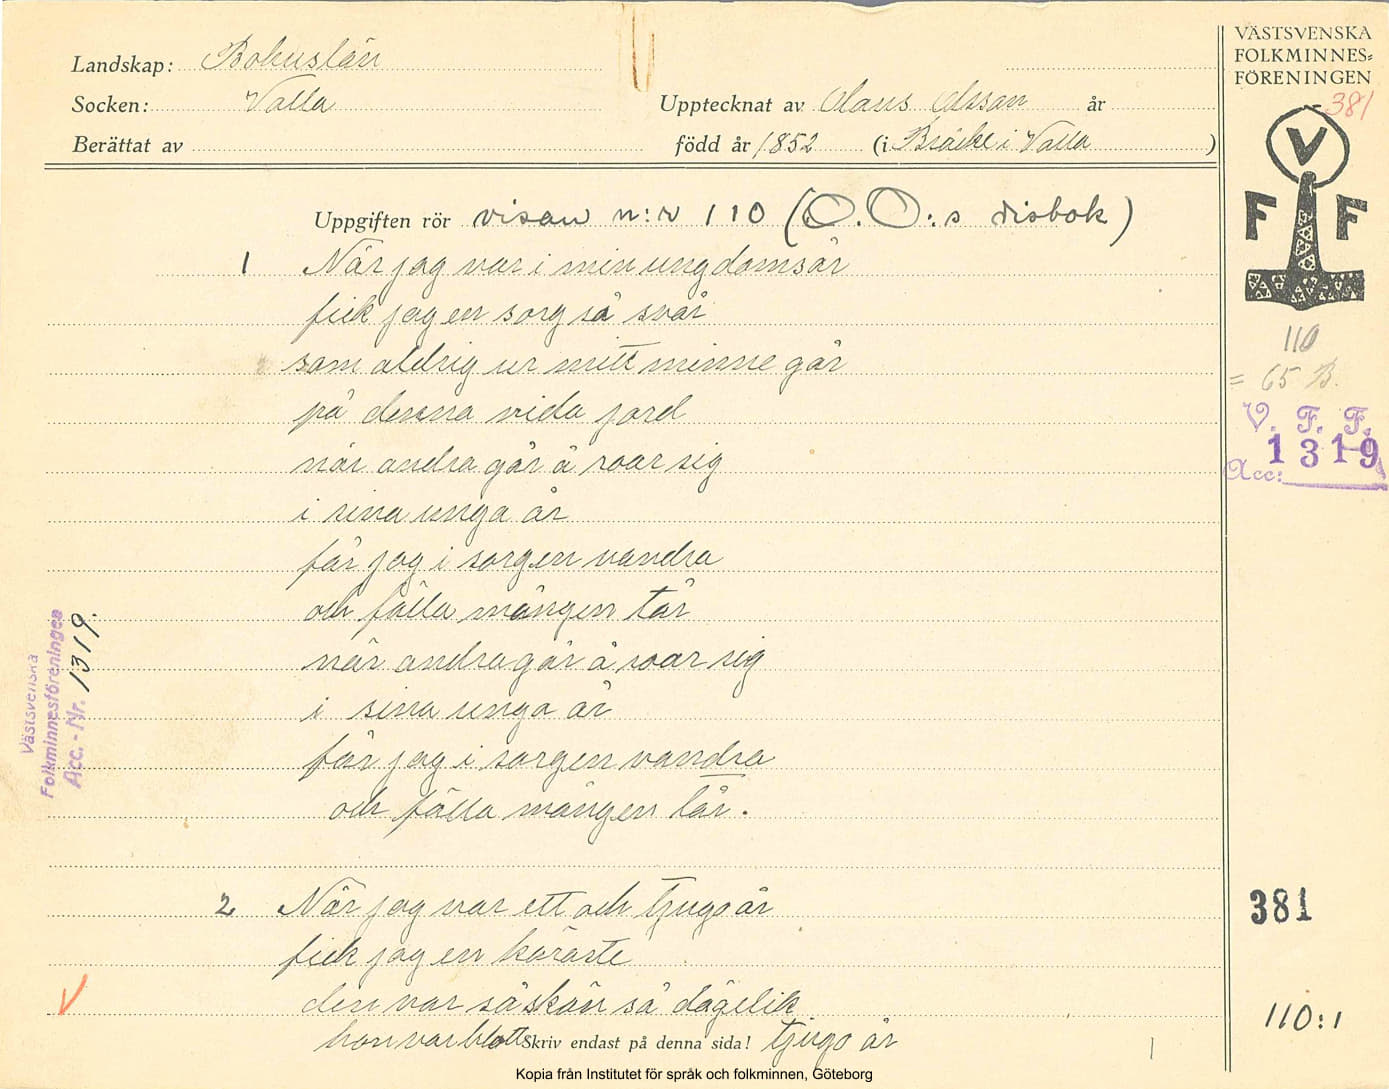 Landskap: Bohuslän
Socken: Valla
Upptecknat av Olaus Olsson år
Berättat av
född år 1852 (i Bräcke i Valla )
Uppgiften rör visan n:r 110 (O. O:s visbok)
1 När jag var i min ungdomsår
fick jag en sorg så svår
som aldrig ur mitt minne går
på denna vida jord
när andra går å roar sig
i sina unga år
får jag i sorgen vandra
och fälla mången tår
när andra går å roar sig
i sina unga år
får jag i sorgen vandra
och fälla mången tår.
2 När jag var ett och tjugo år
fick jag en käraste
den var så skön så dägelik
hon var blott tjugo år
Skriv endast på denna sida!
VÄSTSVENSKA
FOLKMINNES=
FÖRENINGEN
381
V
F F
110
= 65 B.
V. F. F.
1319
Acc:
381
110:1
Västsvenska
Folkminnesföreningen
Acc. - Nr. 1319.
Kopia från Institutet för språk och folkminnen, Göteborg